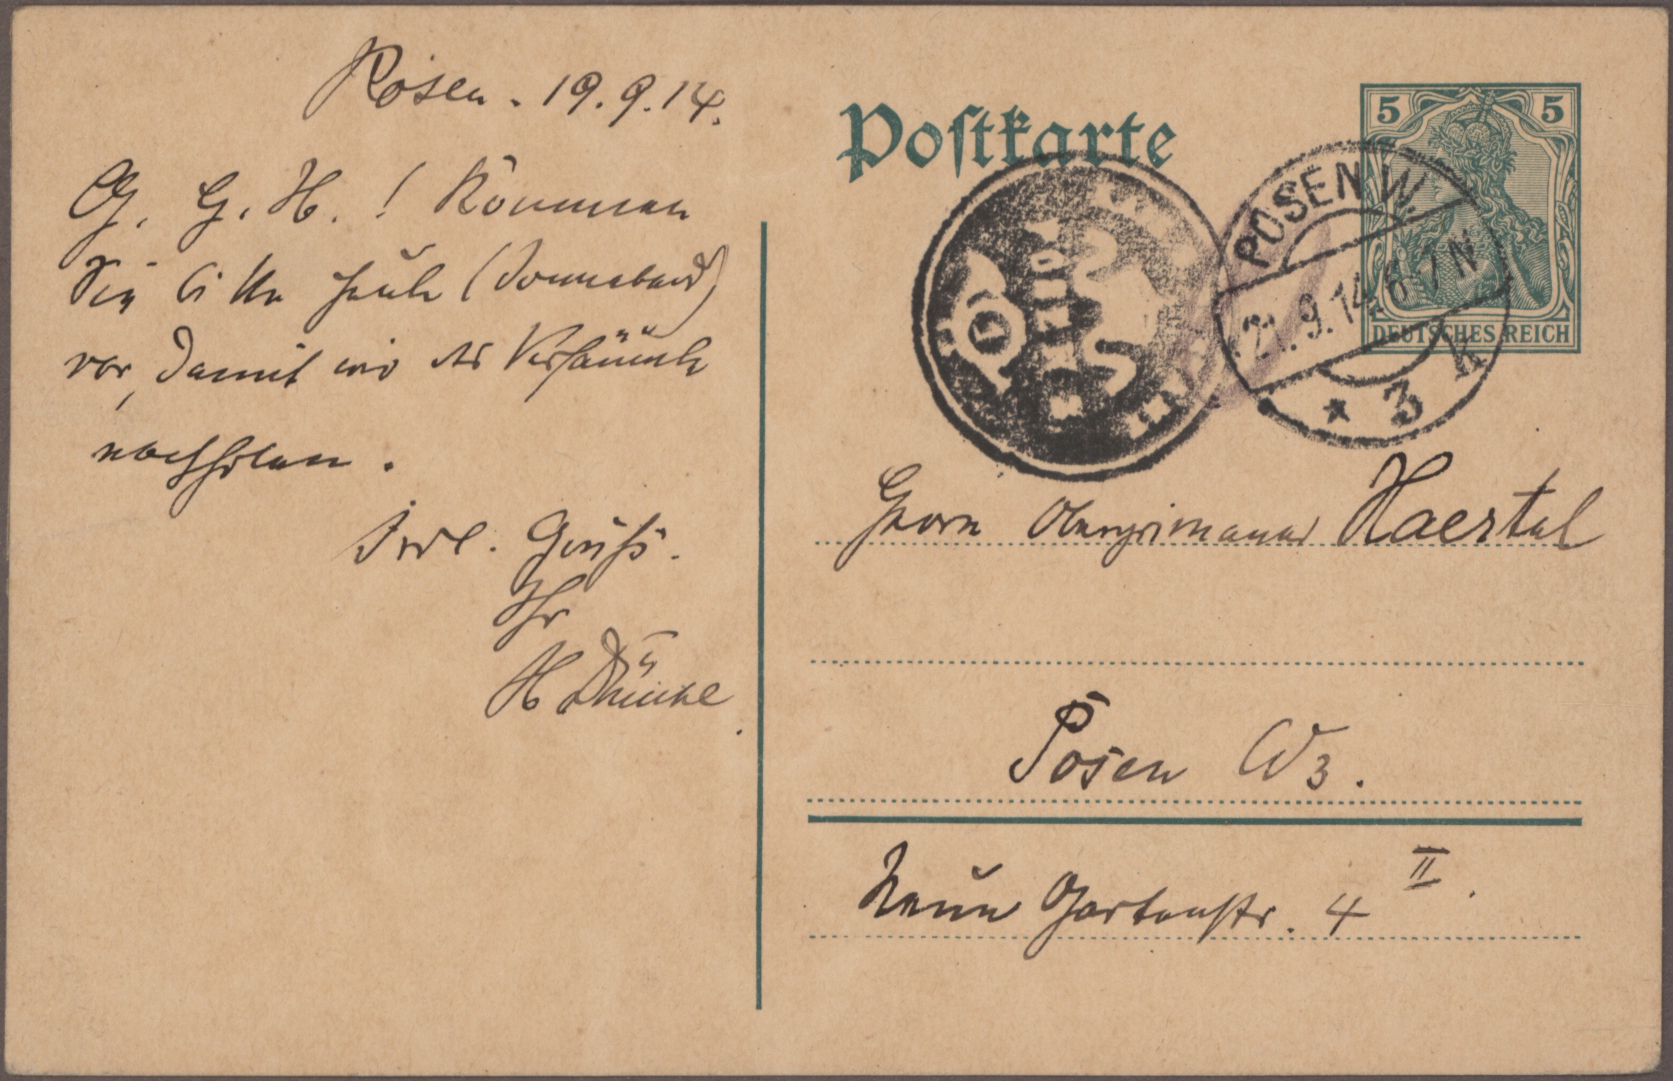 Posen. 19.9.14.
G. H.! Kommen
Sie bis früh (Sonnabend)
vor, damit wir das Versäumte
nachholen.
Frdl. Gruß.
Ihr
H
Postkarte
5 5
DEUTSCHES REICH
POSEN W.
.9.14.6-7N
* 3 k
Herrn Oberprimaner Haertel
Posen W3.
Neue Gartenstr. 4 II.